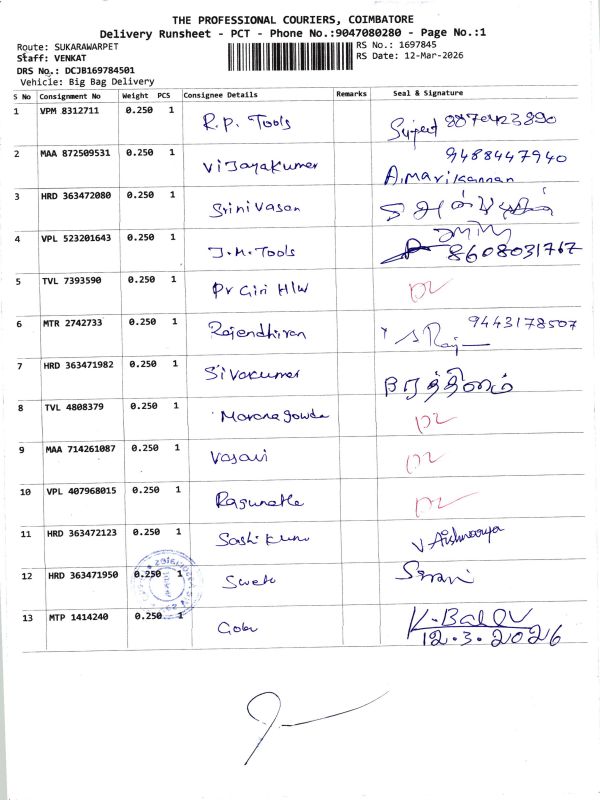 THE PROFESSIONAL COURIERS, COIMBATORE
Delivery Runsheet - PCT - Phone No.:9047080280 - Page No.:1
Route: SUKARAWARPET
RS No.: 1697845
Staff: VENKAT
RS Date: 12-Mar-2026
DRS No.: DCJB169784501
Vehicle: Big Bag Delivery
S No Consignment No Weight PCS Consignee Details Remarks Seal & Signature
1 VPM 8312711 0.250 1 R.P. Tools
2 MAA 872509531 0.250 1 Vijayakumar 9488447940
A.Marikannan
3 HRD 363472080 0.250 1 Srinivasan
4 VPL 523201643 0.250 1 J.M. Tools 8608031767
5 TVL 7393590 0.250 1 Pr Giri H/w
6 MTR 2742733 0.250 1 Rajendhiran 9443178507
7 HRD 363471982 0.250 1 Sivakumar
8 TVL 4808379 0.250 1
9 MAA 714261087 0.250 1 Vasavi
10 VPL 407968015 0.250 1
11 HRD 363472123 0.250 1 V Aishwarya
12 HRD 363471950 0.250 1
13 MTP 1414240 0.250 1 K.Balu
12.3.2026